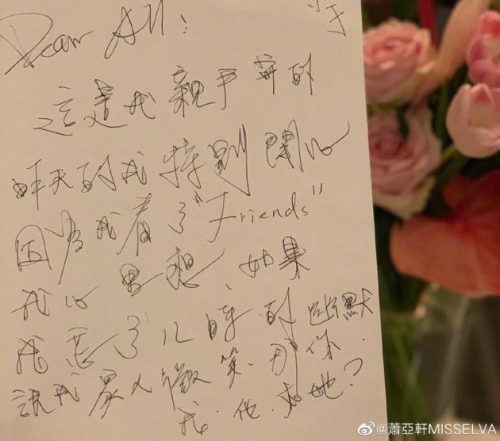 Dear All:
這是我親手寫的
昨天的我特別開心
因為我看了"Friends"
我心裡想、如果
我忘了兒時的幽默
讓我家人微笑、那你
我、他、和她?
@蕭亞軒MISSELVA